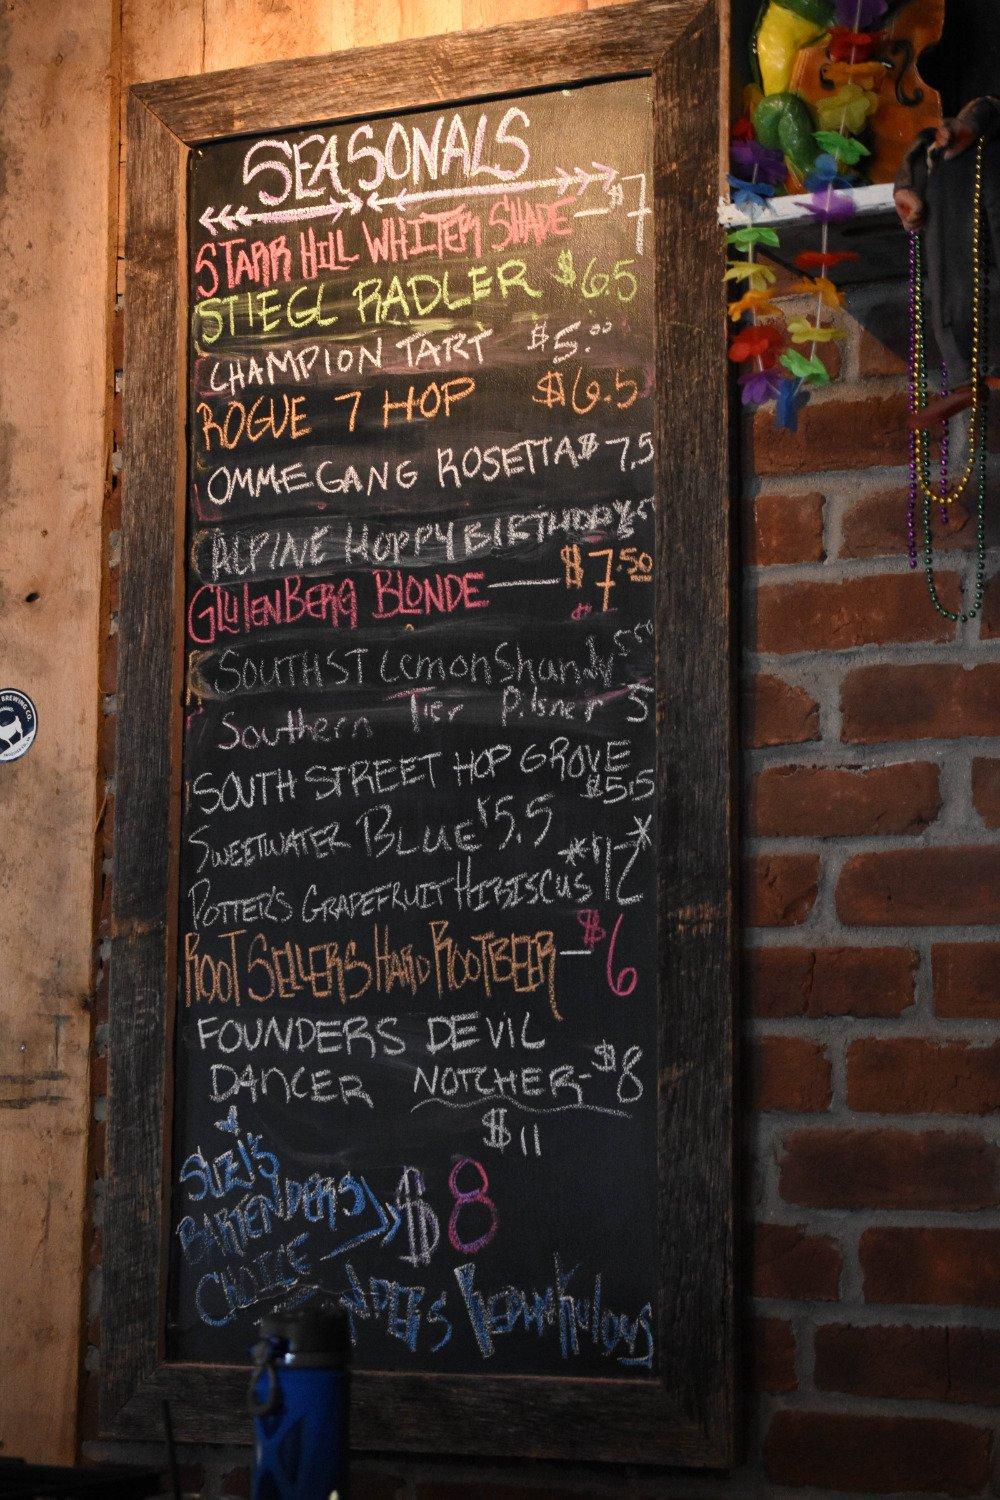 SEASONALS
STARR HILL WHITER SHADE — $7
STIEGL RADLER $6.5
CHAMPION TART $5.00
ROGUE 7 HOP $6.5
OMMEGANG ROSETTA $7.5
ALPINE HOPPY BIRTHDAY
GLUTENBERG BLONDE — $7.50
SOUTH ST LEMON Shandy 5.50
Southern Tier Pilsner 5
SOUTH STREET HOP GROVE
$5.5
SWEETWATER BLUE $5.5
POTTER'S GRAPEFRUIT HIBISCUS *$12*
ROOT SELLERS HARD ROOTBEER — $6
FOUNDERS DEVIL
DANCER NOTCHER - $8
$11
SUZI'S
BARTENDERS $8
CHOICE
BREWING CO.